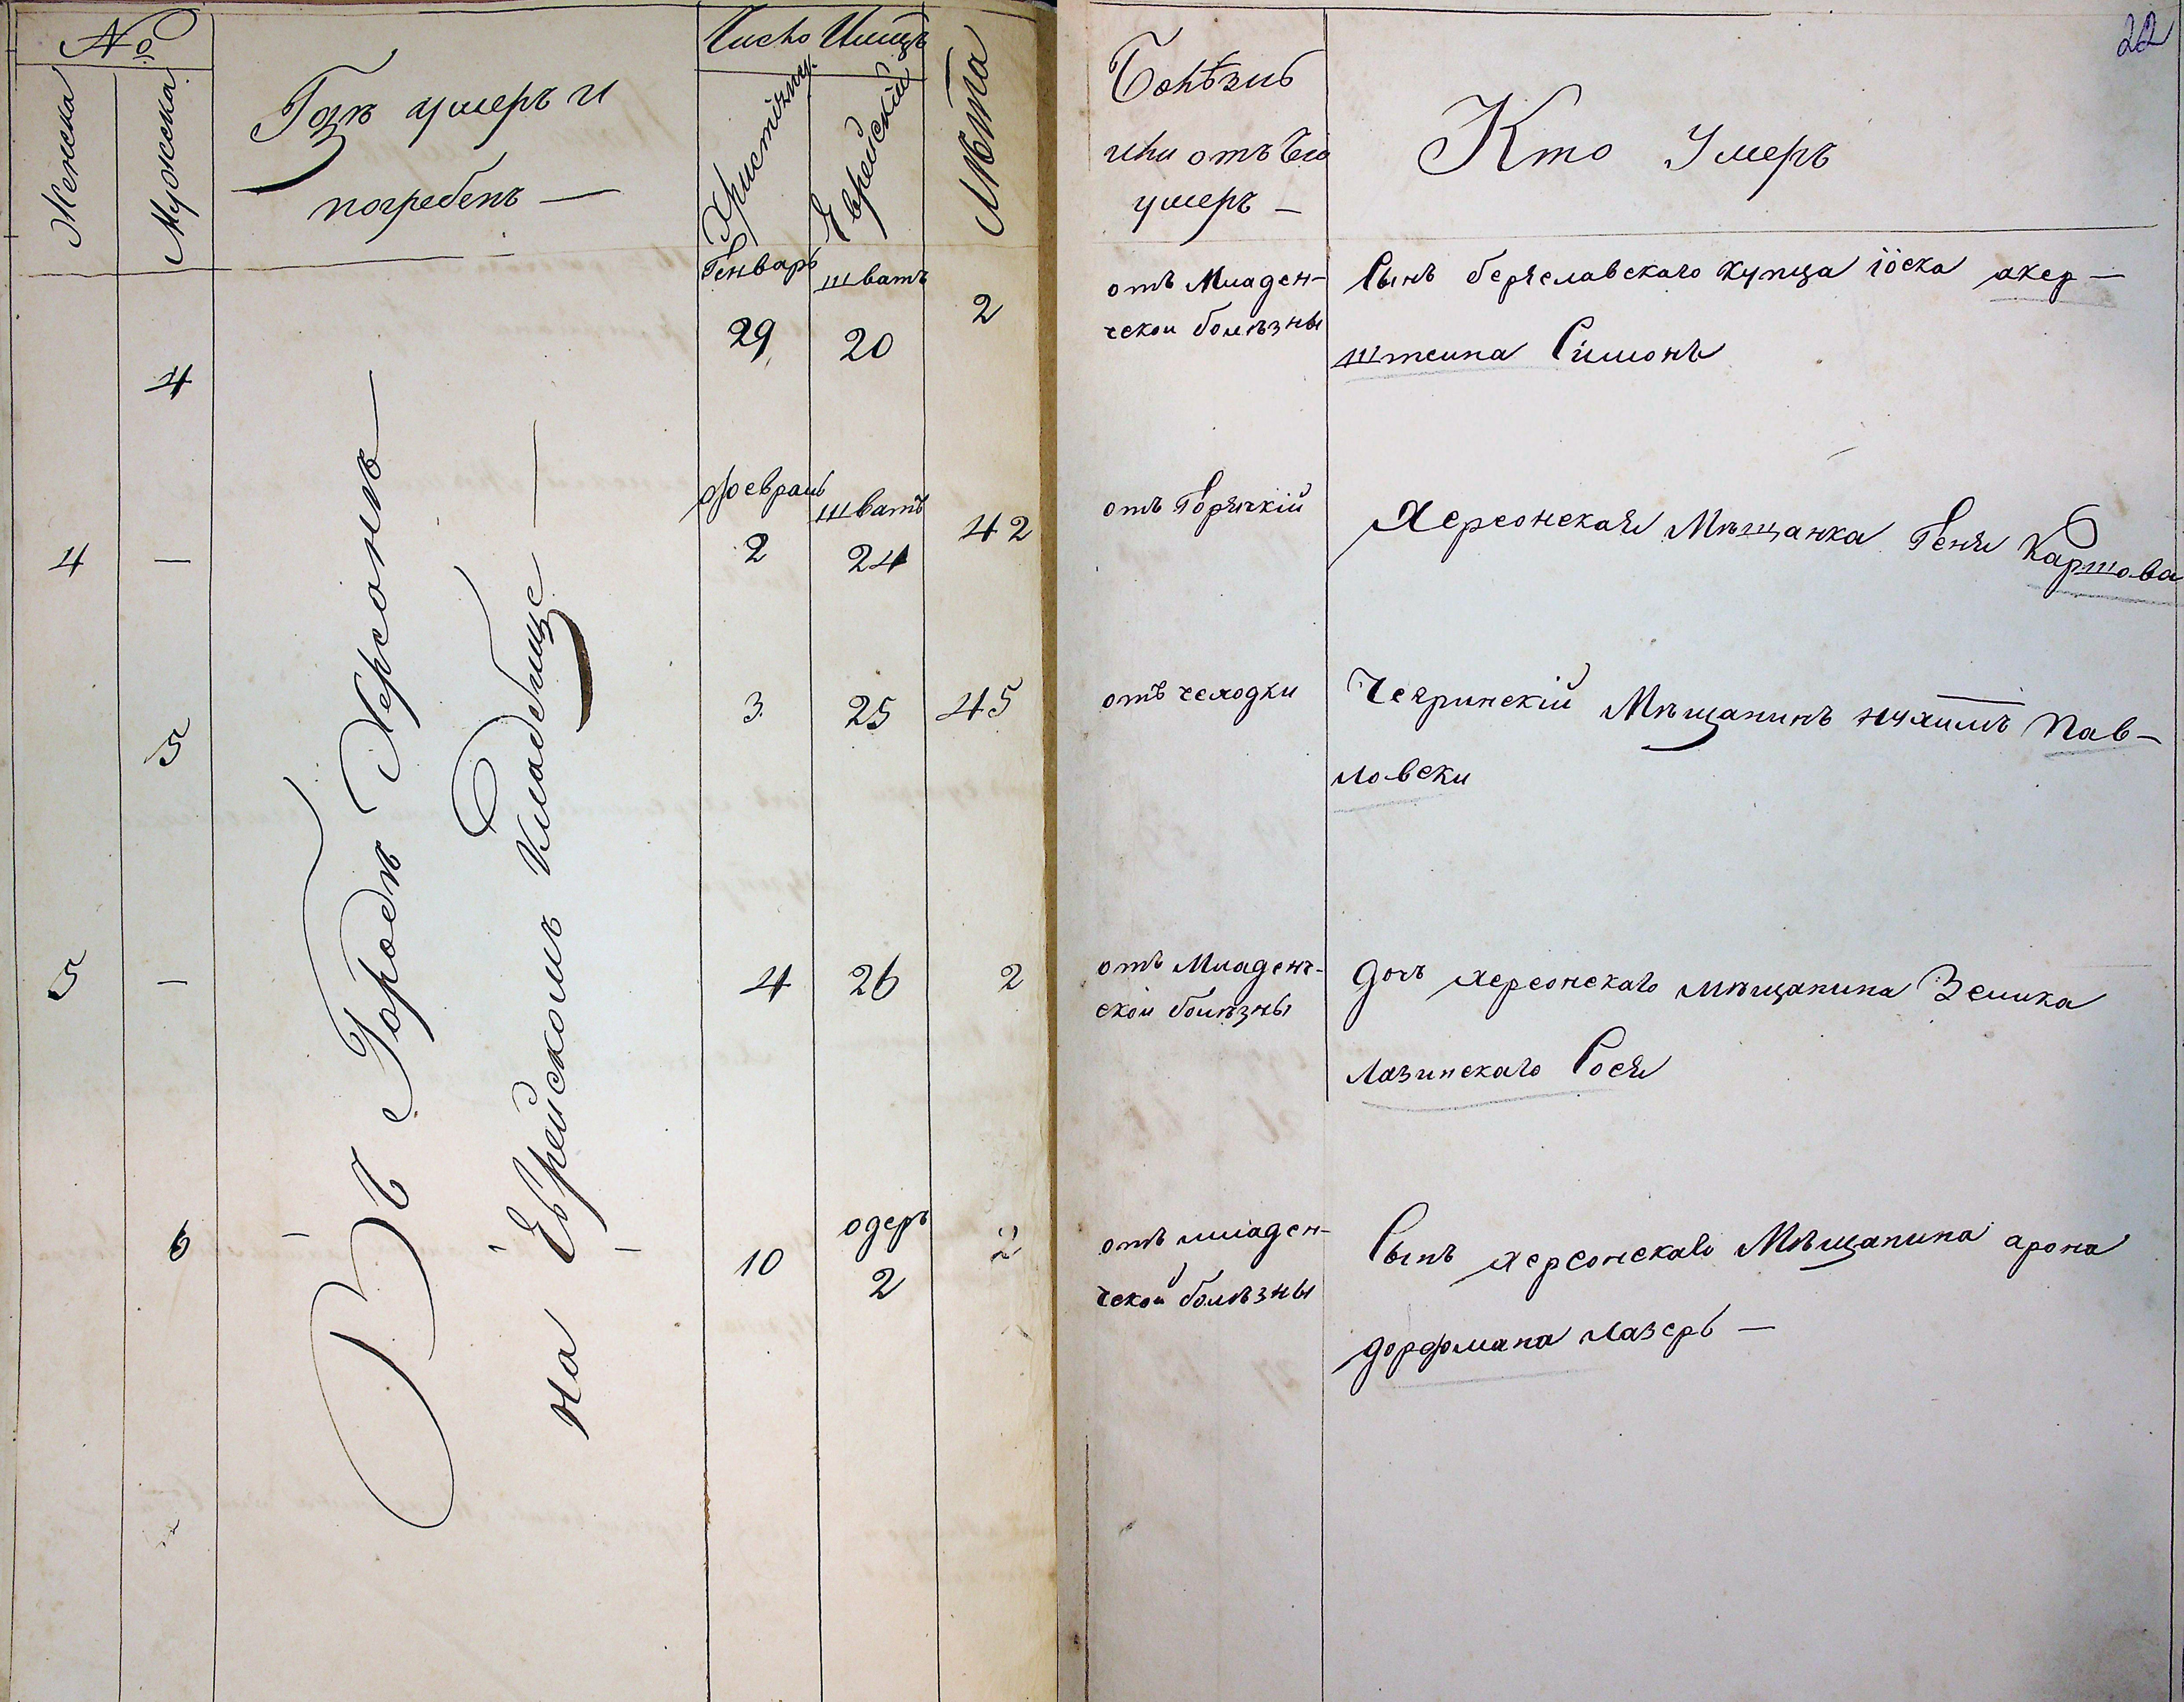 №
Женска
Мужеска
Гдѣ умеръ и
погребенъ —
Число И мцъ
Христіану.
Еврейскій
Лѣта
22
Болѣзнь
или отъ чего
умеръ —
Кто Умеръ
Въ Городѣ Херсонѣ —
на Еврейскомъ Кладбище —
4
Генварь
29
шватъ
20
2
отъ Младен-
ческои болѣзны
Сынъ бериславскаго купца іоска акер-
штеина Симонъ
4
—
февраль
2
шватъ
24
42
отъ Горячкій
Херсонская Мѣщанка Геня Каршова
5
3
25
45
отъ чеходки
Чегринскій Мѣщанинъ нухимъ Пав-
ловски
5
—
4
26
2
отъ Младенч-
скои болѣзны
дочъ херсонскаго мѣщанина Зелика
Лазинскаго Сося
6
10
одеръ
2
2
отъ младен-
ческой болѣзны
Сынъ херсонскаго Мѣщанина арона
дорфмана лазеръ —